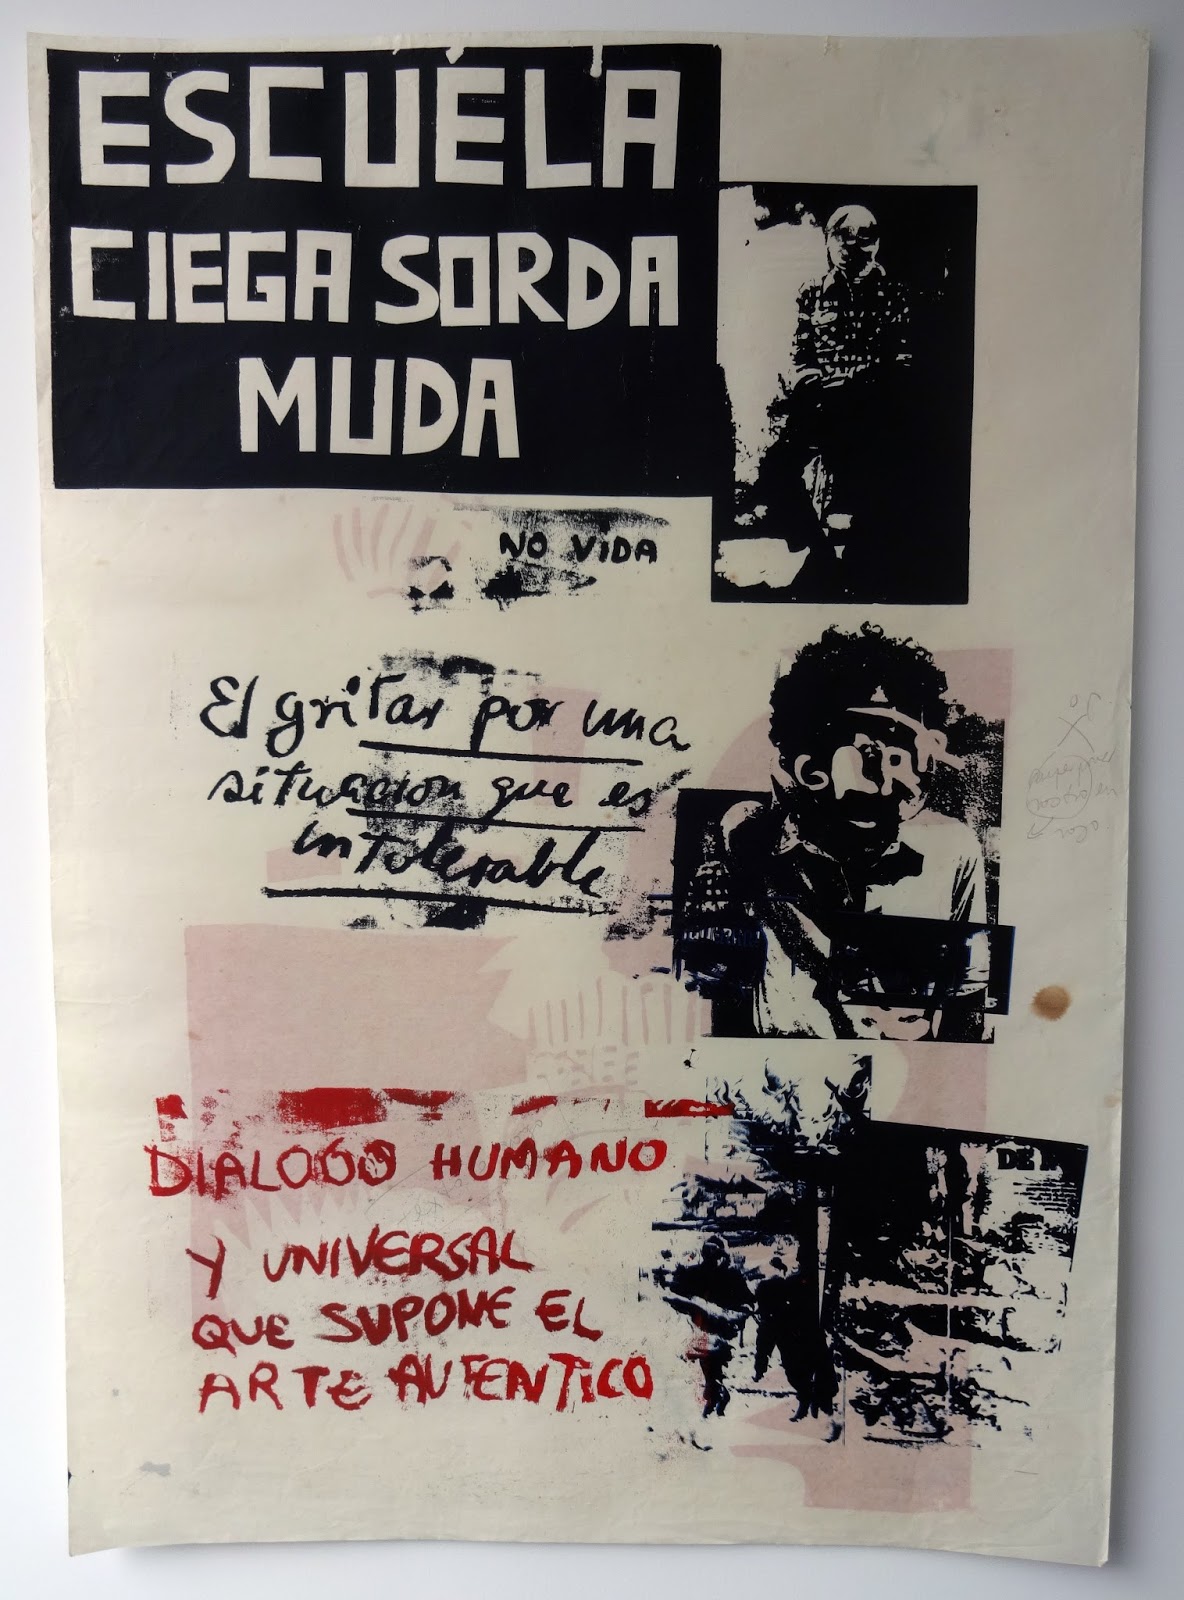 ESCUELA
CIEGA SORDA
MUDA
NO VIDA
El gritar por una
situacion que es
intolerable
DIALOGO HUMANO
Y UNIVERSAL
QUE SUPONE EL
ARTE AUTENTICO